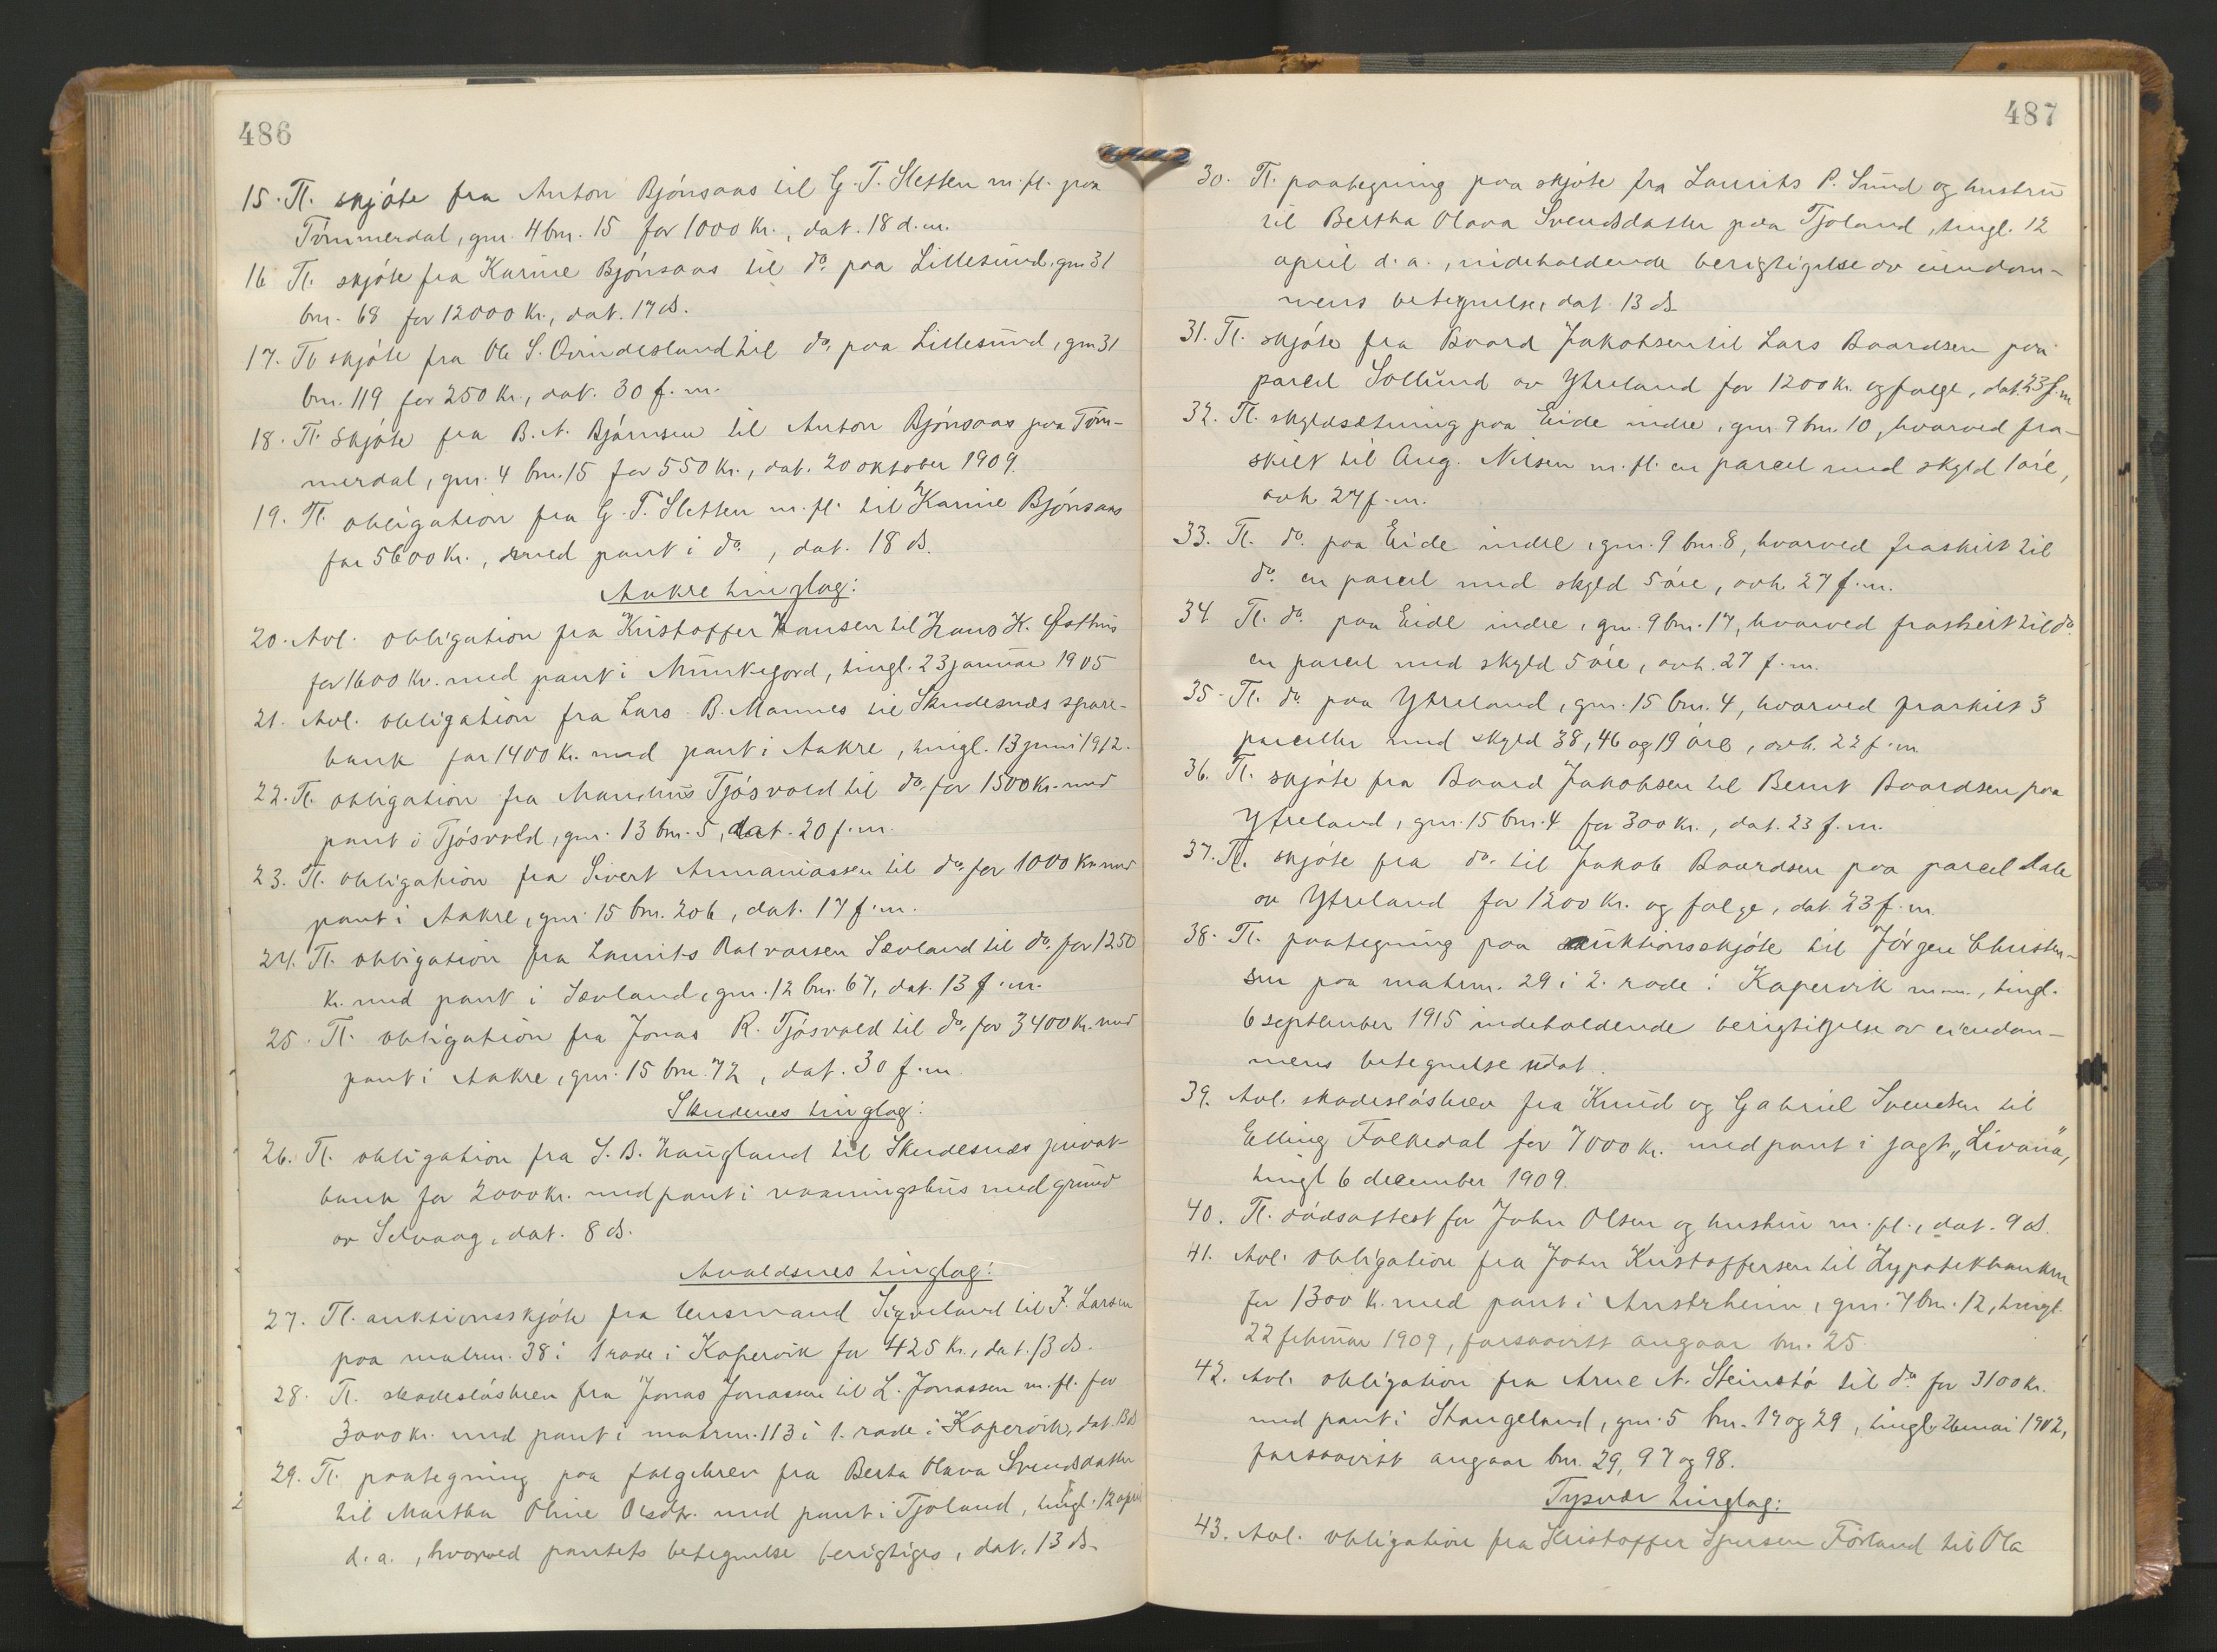 486
15. Tl. skjöte fra Anton Bjónsaas til G. T. Sletten m. fl. paa
Tömmerdal, gnr. 4 bnr. 15 for 1000 kr., dat. 18 d.m.
16 Tl. skjöte fra Karine Bjónsaas til do. paa Lillesund, gnr 31
bnr. 68 for 12000 kr., dat. 17 ds.
17. Tl. skjöte fra Ole S. Qvindesland til do. paa Lillesund, gnr 31
bnr. 119 for 250 kr., dat. 30 f. m.
18. Tl. skjöte fra B. N. Bjórnsen til Anton Bjónsaas paa Töm-
merdal, gnr. 4 bnr. 15 for 550 kr., dat. 20 oktober 1909.
19. Tl. obligation fra G. T. Sletten m. fl. til Karine Bjónsaas
for 5600 kr., med pant i do., dat. 18 ds.
Aakre tinglag:
20. Avl. obligation fra Kristoffer Hansen til Hans K. Østhus
for 1600 kr. med pant i Munkejord, tingl. 23 januar 1905
21. Avl. obligation fra Lars B. Mannes til Skudesnæs spare-
bank for 1400 kr. med pant i Aakre, tingl. 13 juni 1912.
22. Tl. obligation fra Mandius Tjósvold til do. for 1500 kr. med
pant i Tjósvold, gnr. 13 bnr. 5, dat. 20 f. m.
23. Tl. obligation fra Sivert Annaniassen til do. for 1000 kr. med
pant i Aakre, gnr. 15 bnr. 206, dat. 17 f. m.
24. Tl. obligation fra Laurits Sævland til do. for 1250
kr. med pant i Sævland, gnr. 12 bnr. 67, dat. 13 f. m.
25. Tl. obligation fra Jonas R. Tjósvold til do. for 3400 kr. med
pant i Aakre, gnr. 15 bnr. 72, dat. 30 f. m.
Skudenes tinglag:
26. Tl. obligation fra S. B. Haugland til Skudesnæs privat-
bank for 2000 kr. med pant i vaaningshus med grund
av Selvaag, dat. 8 ds.
Avaldsnes tinglag:
27. Tl. auktionsskjöte fra lensmand Sigveland til F. Larsen
paa matrnr. 38 i 1 rode i Kopervik for 425 kr., dat. 13 ds.
28. Tl. skadeslósbrev fra Jonas Jonassen til L. Jonassen m. fl. for
3000 kr. med pant i matrnr. 113 i 1. rode i Kopervik, dat. 13 ds
29. Tl. paategning paa folgebrev fra Berta Olava Svendsdatter
til Martha Oline Olsdtr. med pant i Tjoland, tingl. 12 april
d. a., hvorved pantets betegnelse berigtiges, dat. 13 ds.
487
30. Tl. paategning paa skjöte fra Laurits P. Sund og hustru
til Bertha Olava Svendsdatter paa Tjoland, tingl. 12
april d. a., indeholdende berigtigelse av eiendom-
mens betegnelse, dat. 13 ds.
31. Tl. skjöte fra Baard Jakobsen til Lars Baardsen paa
parcel Sollund av Ytreland for 1200 kr. og folge, dat. 23 f. m
32. Tl. skyldsætning paa Eide indre, gnr. 9 bnr. 10, hvorved fra-
skilt til Aug. Nilsen m. fl. en parcel med skyld 1 óre,
avh. 27 f. m.
33. Tl. do. paa Eide indre, gnr. 9 bnr. 8, hvorved fraskilt til
do. en parcel med skyld 5 óre, avh. 27 f. m.
34 Tl. do. paa Eide indre, gnr. 9 bnr. 17, hvorved fraskilt til do.
en parcel med skyld 5 óre, avh. 27 f. m.
35. Tl. do. paa Ytreland, gnr. 15 bnr. 4, hvorved fraskilt 3
parceller med skyld 38, 46 og 19 óre, avh. 22 f. m
36. Tl. skjöte fra Baard Jakobsen til Bernt Baardsen paa
Ytreland, gnr. 15 bnr. 4 for 300 kr., dat. 23 f. m.
37. Tl. skjöte fra do. til Jakob Baardsen paa parcel Dale
av Ytreland for 1200 kr. og folge, dat. 23 f. m.
38. Tl. paategning paa auktionsskjöte til Jörgen Christen-
sen paa matrnr. 29 i 2. rode i Kopervik m.m., tingl.
6 september 1915 indeholdende berigtigelse av eiendom-
mens betegnelse udat.
39. Avl. skadeslósbrev fra Knud og Gabriel Svendsen til
Elling Falkedal for 7000 kr. med pant i jagt „Livana",
tingl 6 december 1909.
40. Tl. dódsattest for John Olsen og hustru m. fl., dat. 9 ds.
41. Avl. obligation fra John Kristoffersen til Hypotekbanken
for 1300 kr. med pant i Austrheim, gnr. 7 bnr. 12, tingl.
22 februar 1909, forsaavidt angaar bnr. 25.
42. Avl. obligation fra Arne N. Steinstó til do. for 3100 kr.
med pant i Stangeland, gnr. 5 bnr. 17 og 29, tingl. 26 mai 1902,
forsaavidt angaar bnr. 29, 97 og 98.
Tysvær tinglag:
43. Avl. obligation fra Kristoffer Sjursen Förland til Ola